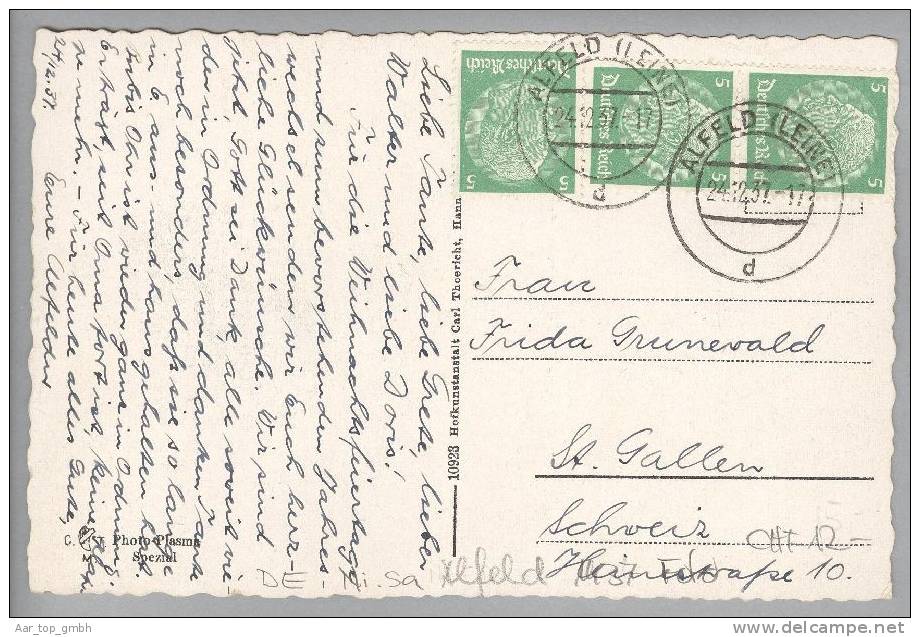 Liebe Tante, liebe Grete, lieber
Walter und liebe Doris!
Für die Weihnachtsfeiertage
und zum bevorstehenden Jahres-
wechsel senden wir Euch herz-
liche Glückwünsche. Wir sind
jetzt, Gott sei Dank, alle soweit wie-
der in Ordnung und danken Tante
noch besonders, daß sie so lange
in E. aus- und hausgehalten hat.
Ertrást, seit Oma fort ist, keine
ja mehr. – Für heute alles Gute,
24.12.37. Eure Alfelder
10923 Hofkunstanstalt Carl Thoericht, Hann
C. T.
M.
Photo-Plasma
Spezial
Deutsches Reich
5
5
Deutsches Reich
5
5
Deutsches Reich
5
5
ALFELD (LEINE)
24.12.37.-17
d
ALFELD (LEINE)
24.12.37.-17
d
Frau
Frida Grunewald
St. Gallen
Schweiz
straße 10.
CHF 12.-
DE Ni.Sa Alfeld
Aar_top_gmbh
delcampe.net